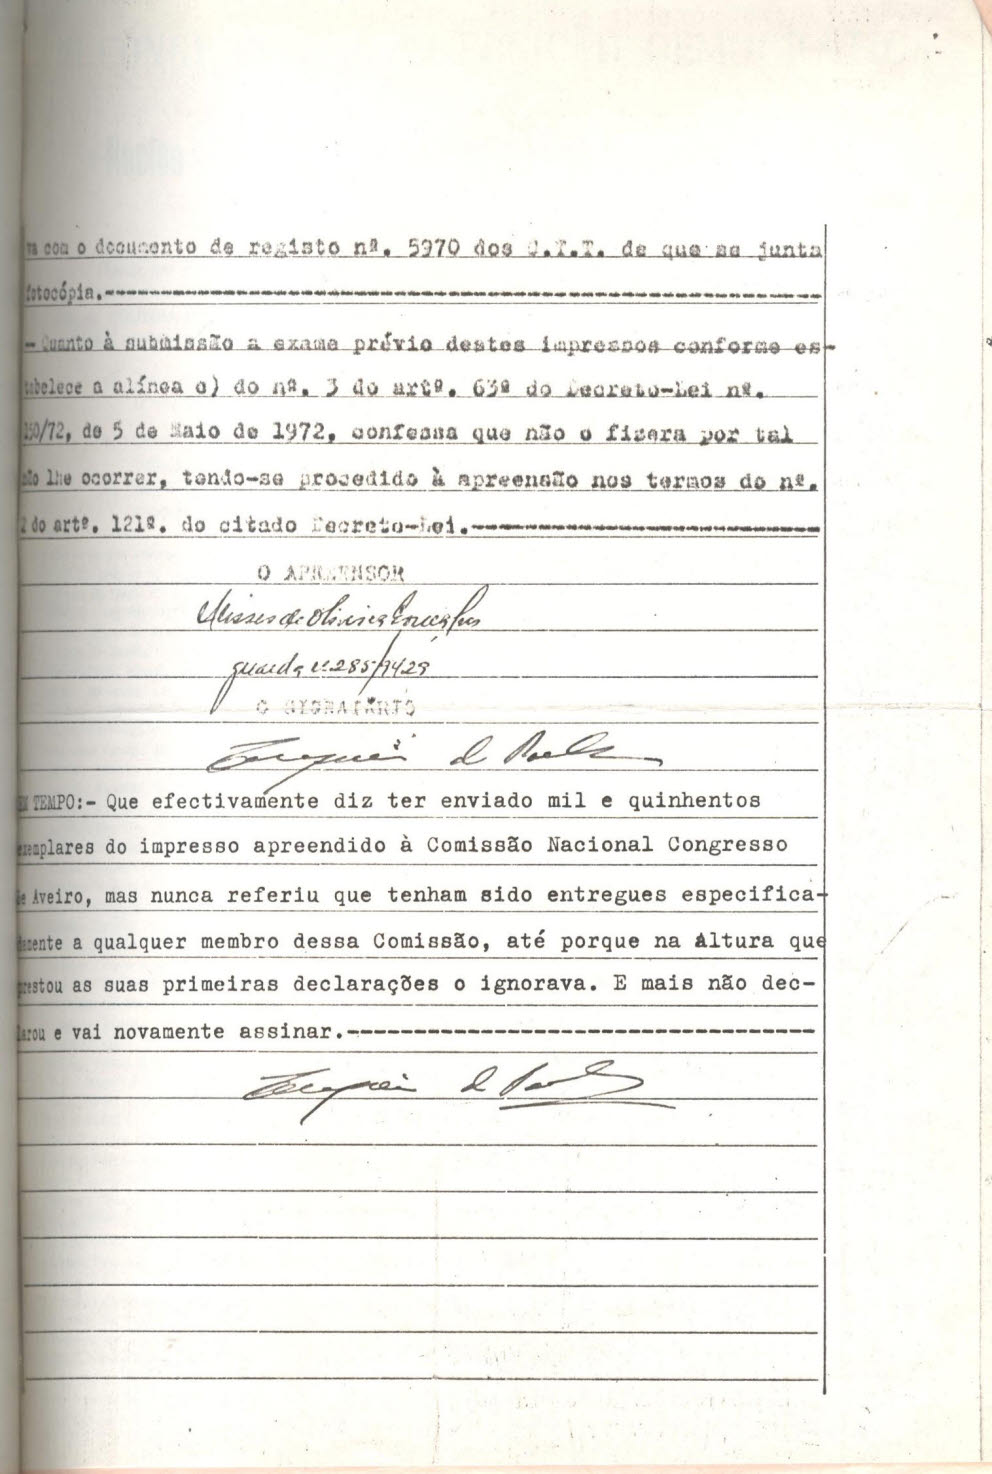 va com o documento de registo nª. 5970 dos C.T.T. de que se junta
fotocópia.-
- Quanto à submissão a exame prévio destes impressos conforme es-
tabelece a alínea c) do nª. 3 do artº. 63º do Decreto-Lei nº.
150/72, de 5 de Maio de 1972, confessa que não o fizera por tal
não lhe ocorrer, tendo-se procedido à apreensão nos termos do nº.
2 do artº. 121º. do citado Decreto-Lei.-
O APREENSOR
Ulisses de Oliveira Gonçalves
guarda nº 285/9429
O SIGNATÁRIO
EM TEMPO:- Que efectivamente diz ter enviado mil e quinhentos
exemplares do impresso apreendido à Comissão Nacional Congresso
de Aveiro, mas nunca referiu que tenham sido entregues especifica-
damente a qualquer membro dessa Comissão, até porque na Altura que
prestou as suas primeiras declarações o ignorava. E mais não dec-
larou e vai novamente assinar.-